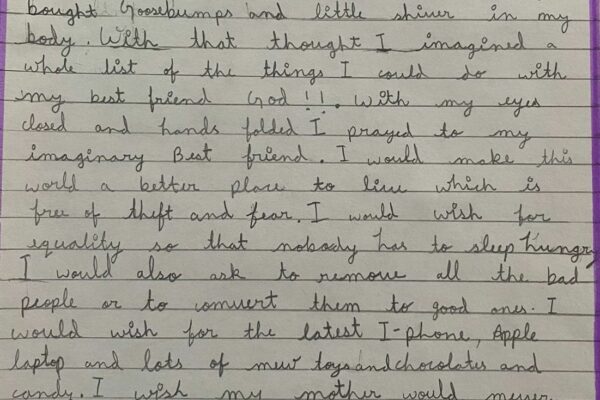 bought Goosebumps and little shiver in my
body. With that thought I imagined a
whole list of the things I could do with
my best friend God !!. With my eyes
closed and hands folded I prayed to my
imaginary Best friend. I would make this
world a better place to live which is
free of theft and fear. I would wish for
equality so that nobody has to sleep hungry
I would also ask to remove all the bad
people or to convert them to good ones. I
would wish for the latest I-phone, Apple
laptop and lots of new toys and chocolates and
candy. I wish my mother would never